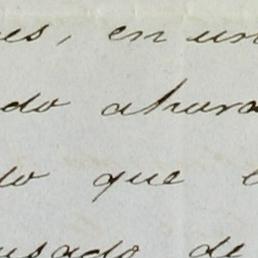 es, en un
do ahora
do que
usado de